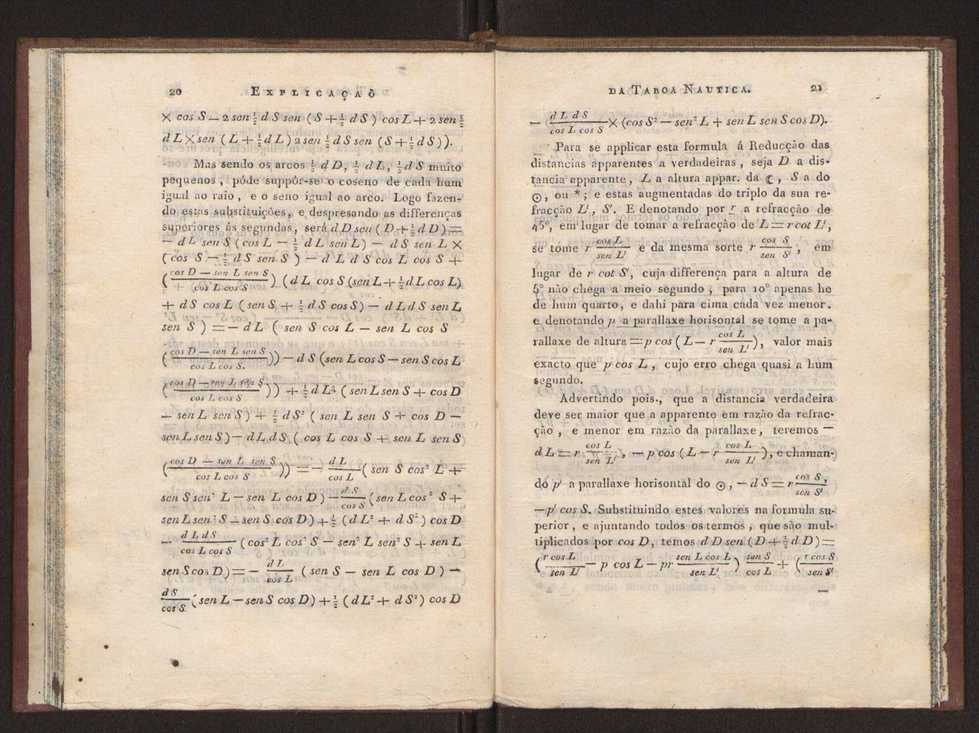 20 EXPLICAÇAÕ
× cos S — 2 sen ½ d S sen (S + ½ dS) cos L + 2 sen ½
d L × sen (L + ½ d L) 2 sen ½ d S sen (S + ½ d S)).
Mas sendo os arcos ½ d D, ½ d L, ½ d S muito
pequenos, póde suppôr-se o coseno de cada hum
igual ao raio, e o seno igual ao arco. Logo fazen-
do estas substituições, e despresando as differenças
superiores ás segundas, será d D sen (D + ½ d D) =
— d L sen S (cos L — ½ d L sen L) — d S sen L ×
(cos S — ½ d S sen S) — d L d S cos L cos S +
(cos D — sen L sen S / cos L cos S) (d L cos S (sen L + ½ d L cos L)
+ d S cos L (sen S + ½ d S cos S) — d L d S sen L
sen S) = — d L (sen S cos L — sen L cos S
(cos D — sen L sen S / cos L cos S.)) — d S (sen L cos S — sen S cos L
(cos D — sen L sen S / cos L cos S)) + ½ d L² (sen L sen S + cos D
— sen L sen S) + ½ d S² (sen L sen S + cos D —
sen L sen S) — d L d S (cos L cos S + sen L sen S
(cos D — sen L sen S / cos L cos S)) = — d L / cos L (sen S cos² L +
sen S sen² L — sen L cos D) — d S / cos S (sen L cos² S +
sen L sen² S — sen S cos D) + ½ (d L² + d S²) cos D
— d L d S / cos L cos S (cos² L cos² S — sen² L sen² S + sen L
sen S cos D) = — d L / cos L (sen S — sen L cos D) —
d S / cos S (sen L — sen S cos D) + ½ (d L² + d S²) cos D
DA TABOA NAUTICA. 21
— d L d S / cos L cos S × (cos S² — sen² L + sen L sen S cos D).
Para se applicar esta formula á Reducção das
distancias apparentes a verdadeiras, seja D a dis-
tancia apparente, L a altura appar. da ☾, S a do
☉, ou *; e estas augmentadas do triplo da sua re-
fracção L', S'. E denotando por r a refracção de
45°, em lugar de tomar a refracção de L = r cot L',
se tome r cos L / sen L' e da mesma sorte r cos S / sen S', em
lugar de r cot S', cuja differença para a altura de
5° não chega a meio segundo, para 10° apenas he
de hum quarto, e dahi para cima cada vez menor.
e denotando p a parallaxe horisontal se tome a pa-
rallaxe de altura = p cos (L — r cos L / sen L'), valor mais
exacto que p cos L, cujo erro chega quasi a hum
segundo.
Advertindo pois, que a distancia verdadeira
deve ser maior que a apparente em razão da refrac-
ção, e menor em razão da parallaxe, teremos —
d L = r cos L / sen L', — p cos (L — r cos L / sen L'), e chaman-
do p' a parallaxe horisontal do ☉, — d S = r cos S, / sen S'
— p' cos S. Substituindo estes valores na formula su-
perior, e ajuntando todos os termos, que são mul-
tiplicados por cos D, temos d D sen (D + ½ d D) =
(r cos L / sen L' — p cos L — pr sen L cos L / sen L') sen S / cos L + (r cos S / sen S'
—